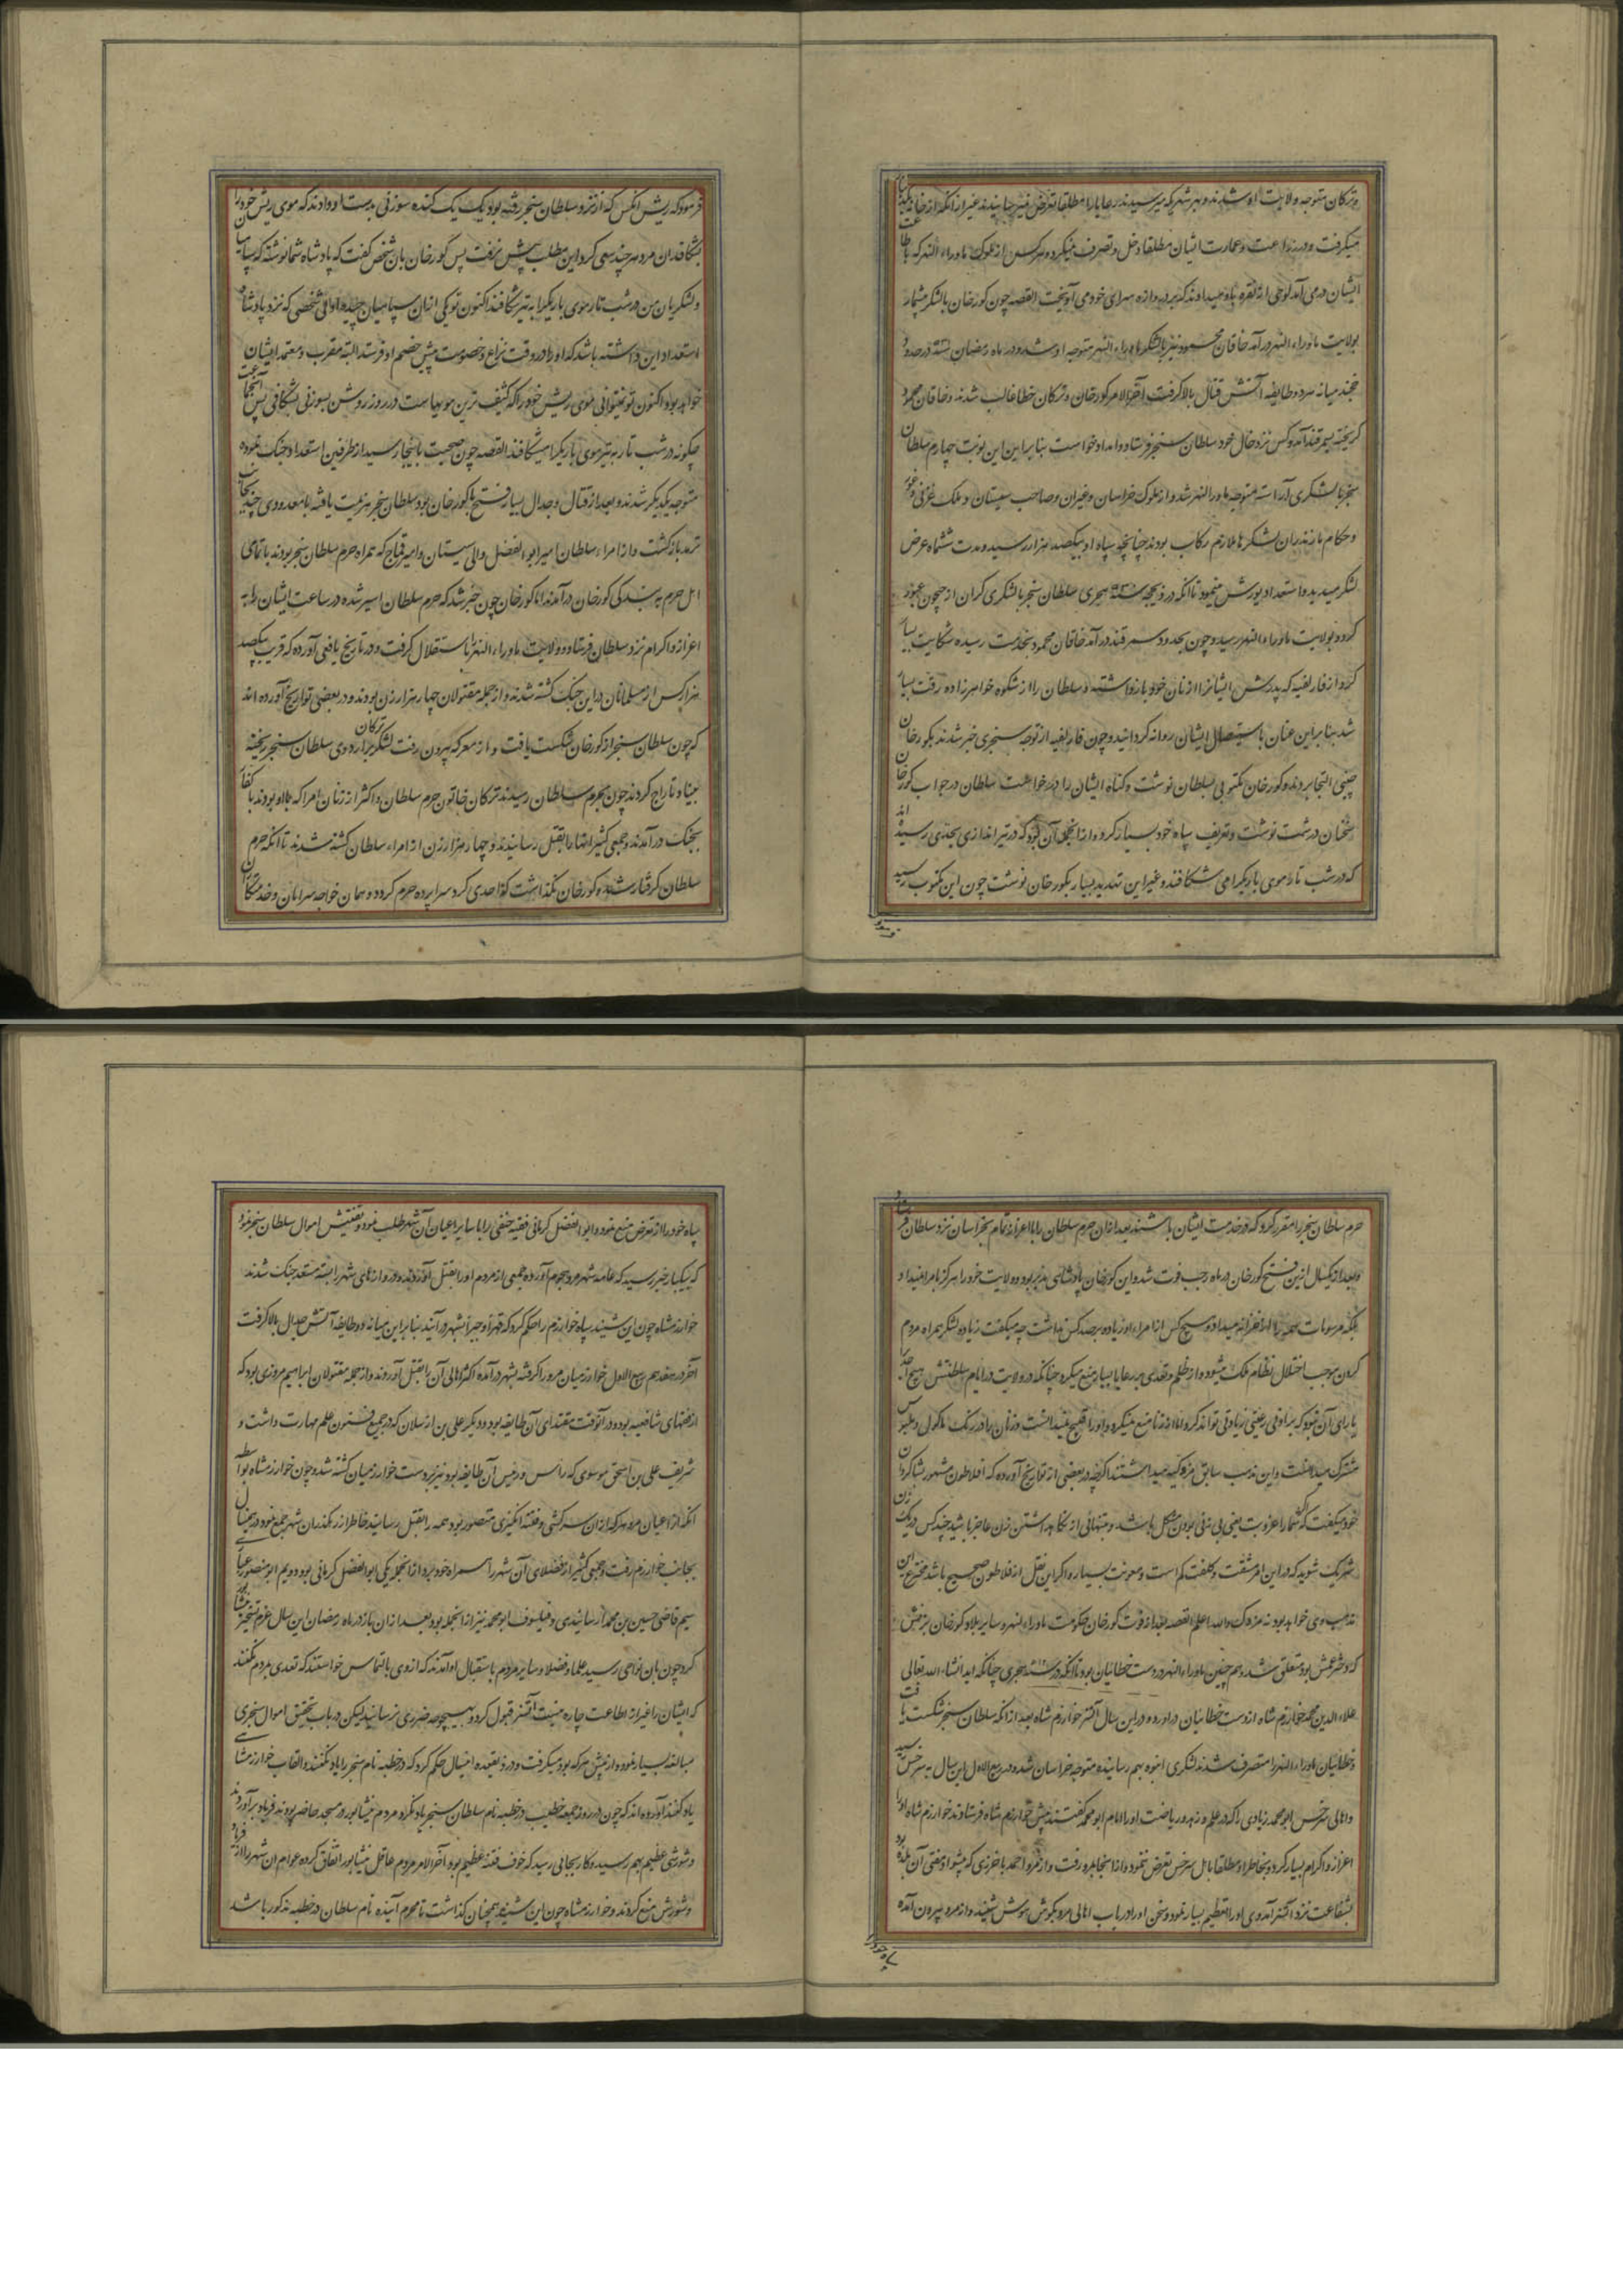 وترکان متوجه ولایت او شدند و بهر شهر که میرسیدند رعایا را مطلقا تعرض نمیرسانیدند غیر از آنکه از خانه
میکرفت و در زراعت و عمارت ایشان مطلقا دخل و تصرف نمیکرد و هر کس از ملوک ماوراء النهر که باطاعت
ایشان در می آمد لوحی از نقره باو میدادند که بر دروازه سرای خود می آویخت القصه چون کورخان با لشکر بیشمار
بولایت ماوراء النهر در آمد خاقان محمود نیز با لشکر ماوراء النهر متوجه او شد و در ماه رمضان در حدود
خجند میانه هر دو طایفه آتش قتال بالا کرفت آخر الامر کورخان و ترکان خطا غالب شدند و خاقان محمود
کریخته بسمرقند آمد و کس نزد خال خود سلطان سنجر فرستاد و امداد خواست بنابراین این نوبت چهارم سلطان
سنجر با لشکری آراسته متوجه ماورا النهر شد و از ملوک خراسان وغیران وصاحب سیستان و ملک غزنی و غور
و حکام مازندران لشکرها ملازم رکاب بودند چنانچه سپاه او بیکصد هزار رسید و مدت ششماه عرض
لشکر میدید و استعداد یورش مینمود تا آنکه در ذیحجه سنه هجری سلطان سنجر با لشکری کران از جیحون عبور
کرد و بولایت ماوراء النهر رسید و چون بحدود سمرقند در آمد خاقان محمود بخدمت رسیده شکایت بسیار
کرد و از قارلغیه که پدرش ایشانرا از نان خود باز داشته و سلطان را از شکوه خواهرزاده رقت بسیار
شد بنابراین عنان باستیصال ایشان روانه کردانید و چون قارلغیه از توجه سنجری خبر شدند بکورخان
چینی التجا بردند و کورخان مکتوبی بسلطان نوشت و کناه ایشان را درخواست سلطان در جواب کورخان
سخنان درشت نوشت و تعریف سپاه خود بسیار کرد و از انجمله آن بود که در تیراندازی بحدی رسیده اند
که در شب تار موی باریکرا می شکافند و غیر این تهدید بسیار بکورخان نوشت چون این مکتوب رسید
فرمود
فرمود که ریش انکس که از نزد سلطان سنجر رفته بود یک یک کنده سوزنی بدست او دادند که موی ریش خود را
بشکاف ان مرد هر چند سعی کرد این مطلب پیش نرفت پس کورخان بان شخص کفت که پادشاه شما نوشته که سپاهیان
و لشکریان من در شب تار موی باریکرا به تیر شکافند اکنون تو یکی از ان سپاهیان چیده اولی شخصی که نزد پادشاه
استعداد این داشته باشد که او را در وقت نزاع و خصومت پیش خصم او فرستد البته مقرب و معتمد ایشان
خواهد بود و اکنون تو نمیتوانی موی ریش خود را که کثیف ترین مویهاست در روز روشن بسوزنی بشکافی پس آنجماعت
چکونه در شب تار به تیر موی باریکرا میشکافند القصه چون صحبت باینجا رسید از طرفین استعداد جنک نموده
متوجه یکدیکر شدند و بعد از قتال و جدال بسیار فتح با کورخان بود سلطان سنجر هزیمت یافته با معدودی چند بجانب
ترمد باز کشت و از امراء سلطان امیر ابوالفضل والی سیستان و امیر قماج که همراه حرم سلطان سنجر بودند با تمامی
اهل حرم به بندکی کورخان در آمدند اما کورخان چون خبر شد که حرم سلطان اسیر شده در ساعت ایشان را به
اعزاز و اکرام نزد سلطان فرستاد و ولایت ماوراء النهر باستقلال کرفت و در تاریخ یافعی آورده که قریب بیکصد
هزار کس از مسلمانان در این جنک کشته شدند و از جمله مقتولان چهار هزار زن بودند و در بعضی تواریخ آورده اند
که چون سلطان سنجر از کورخان شکست یافت و از معرکه بیرون رفت لشکر ترکان بر اردوی سلطان سنجر ریخته
یغما و تاراج کردند چون بحرم سلطان رسیدند ترکان خاتون حرم سلطان و اکثر از زنان امرا که با او بودند با کفار
بجنک در آمدند و جمعی کثیر انها را بقتل رسانیدند و چهار هزار زن از امراء سلطان کشته شدند تا آنکه حرم
سلطان کرفتار شد و کورخان نکذاشت که احدی کرد سراپرده حرم کردد و همان خواجه سرایان و خدمتکاران
حرم سلطان سنجر را مقرر کرد که در خدمت ایشان باشند بعد از ان حرم سلطان را با اعزاز تمام بخراسان نزد سلطان فرستاد
و بعد از یکسال از این فتح کورخان در ماه رجب فوت شد و این کورخان پادشاهی مدبر بود و ولایت خود را هرکز بامرا نمیداد
بلکه مرسومات همه را از خزانه میداد و هیچ کس از امراء او زیاده بر صد کس نداشت چه میکفت زیاده لشکر همراه مردم
کردن موجب اختلال نظام ملک میشود و از ظلم و تعدی بر رعایا بسیار منع میکرد چنانکه در ولایت در ایام سلطنتش هیچ احدی
یارای آن نبود که بر ادنی رعیتی زیادتی تواند کرد اما از زنا منع نمیکرد و او را قبیح نمیدانست و زنان را در رنک ماکول و ملبوس
مشترک میدانست و این مذهب سابق مزدکیه میداشتند اکرچه در بعضی از تواریخ آورده که افلاطون مشهور بشاکردان
خود میکفت که اکر شما را عزوبت یعنی بی زنی بودن مشکل باشد و بتنهائی از نکاهداشتن زن عاجز باشید چند کس در یک زن
شریک شوید که در این امر مشقت و کلفت کم است و معونت بسیار و اکر این نقل از افلاطون صحیح باشد مخترع این
مذهب وی خواهد بود نه مزدک والله اعلم القصه بعد از فوت کورخان حکومت ماوراء النهر و سایر بلاد کورخان بزنش
که دختر عمش بود متعلق شد و همچنین ماوراء النهر در دست خطائیان بود تا آنکه در سنه هجری چنانکه اید انشاء الله تعالی
علاء الدین محمد خوارزم شاه از دست خطائیان دراورد و در این سال آتسز خوارزم شاه بعد از انکه سلطان سنجر شکست یافت
و خطائیان ماوراء النهر را متصرف شدند لشکری انبوه بهم رسانیده متوجه خراسان شد و در ربیع الاول این سال بسرخس رسید
و اهالی سرخس ابو محمد زیادی را که در علم و زهد و ریاضت او را امام ابو محمد کفتند پیش خوارزم شاه فرستادند خوارزم شاه او را
اعزاز و اکرام بسیار کرد و بخاطر او مطلقا باهل سرخس تعرض ننمود و از انجا بمرو رفت و از مرو احمد باخرزی که پیشوا و مفتی آن بلده بود
بشفاعت نزد آتسز آمد وی او را تعظیم بسیار نمود و سخن او را در باب اهالی مرو بکوش هوش شنید و از مرو بیرون آمده
سپاه خود را
سپاه خود را از تعرض منع نمود و ابوالفضل کرمانی فقیه حنفی را با سایر اعیان آن شهر طلب نمود و تفتیش اموال سلطان سنجر نمود
که بیکبار خبر رسید که عامه شهر مرو هجوم آورده جمعی از مردم او را بقتل آوردند و دروازهای شهر را بسته مستعد جنک شدند
خوارزمشاه چون این شنید سپاه خوارزم را حکم کرد که قهرا و جبرا بشهر در آیند بنابراین میانه دو طایفه آتش جدال بالا کرفت
آخر در هفدهم ربیع الاول خوارزمیان مرو را کرفته بشهر درآمده اکثر اهالی آن را بقتل آوردند و از جمله مقتولان ابراهیم مروزی بود که
از فقهای شافعیه بود و در آنوقت مقتدای آن طایفه بود و دیکر علی بن ارسلان که در جمیع فنون علم مهارت داشت و
شریف علی بن اسحق موسوی که رأس و رئیس آن طایفه بود نیز بر دست خوارزمیان کشته شد و چون خوارزمشاه بواسطه
آنکه از اعیان مرو هر که از ان سرکشی و فتنه انکیزی متصور بود همه را بقتل رسانید خاطر از رهکذران شهر جمع نمود در همین سال
بجانب خوارزم رفت و جمعی کثیر از فضلای آن شهر را همراه خود برد از انجمله یکی ابوالفضل کرمانی بود دویم ابو منصور عبادی
سیم قاضی حسین بن محمد ارسابندی و فیلسوف ابو محمد نیز از انجمله بود بعد از ان باز در ماه رمضان این سال عزم تسخیر نیشابور
کرد چون بان نواحی رسید علما و فضلا و سایر مردم باستقبال او آمدند که از وی بالتماس خواستند که تعدی بمردم نکنند
که ایشان را غیر از اطاعت چاره نیست آتسز قبول کرد و بهیچوجه ضرری نرسانید لیکن در باب تحقیق اموال سنجری
مبالغه بسیار نمود و از پیش هر که بود میکرفت و در ذیقعده این سال حکم کرد که در خطبه نام سنجر را یاد نکنند و القاب خوارزمشاهی
یاد کنند آورده اند که چون در روز جمعه خطیب در خطبه نام سلطان سنجر یاد نکرد مردم نیشابور در مسجد حاضر بودند فریاد برآوردند
و شورشی عظیم بهم رسید و کار بجایی رسید که خوف فتنه عظیم بود آخر الامر مردم عاقل نیشابور اتفاق کرده عوام ان شهر را از فریاد
و شورش منع کردند و خوارزمشاه چون این شنید همچنان کذاشت تا محرم آینده نام سلطان در خطبه مذکور باشد